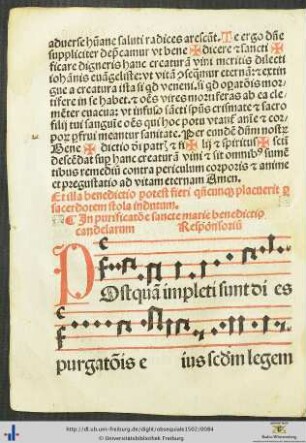 aduerse hūane saluti radices arescāt. Te ergo dn̄e
suppliciter dep̄camur vt bene ✠ dicere ⁊ sancti ✠
ficare digneris hanc creaturā vini meritis dilecti
iohānis euāgeliste: vt vitā
creatura ista
tifere in se habet. ⁊ oēs vires mortiferas ab ea cle-
mēter euacua: vt infuso sācti spūs crismate ⁊ sacro
filij tui sanguīe oēs qui hoc potu vtant̄ aīe ⁊ cor-
Bene ✠ dictio dei patris ⁊ ✠ lij ⁊ spiritus ✠ scī
descēdat sup hanc creaturā vini ⁊ sit omnibꝰ sumē
tibus remediū contra periculum corporis ⁊ anime
et pregustatio ad vitam eternam Amen.
Et illa benedictio potest fieri qn̄cunqꝫ placuerit ꝑ
sacerdotem stola indutum.
¶ In purificatōe sancte marie benedictio
candelarum Responsoriū
POstquā impleti sunt di es
purgatōis e ius scd̄m legem
http://dl.ub.uni-freiburg.de/diglit/obsequiale1502/0084
© Universitätsbibliothek Freiburg
Baden-Württemberg